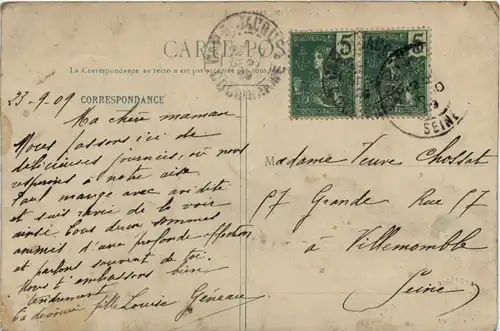 CARTE POS
La Correspondance au recto n'est pas acceptée par tous
5 5
SEINE
23-9-09
CORRESPONDANCE
Ma chère maman
Nous passons ici de
délicieuses journées, où nous
respirons à notre aise
Paul mange avec avidité
et suis ravie de la voir
ainsi. Tous deux sommes
animés d'une profonde affection
et parlons souvent de toi.
Nous t'embassons bien
tendrement
ta dévouée fille Louise Géneau
Madame Veuve Chossat
57 Grande Rue 57
à Villemomble
Seine